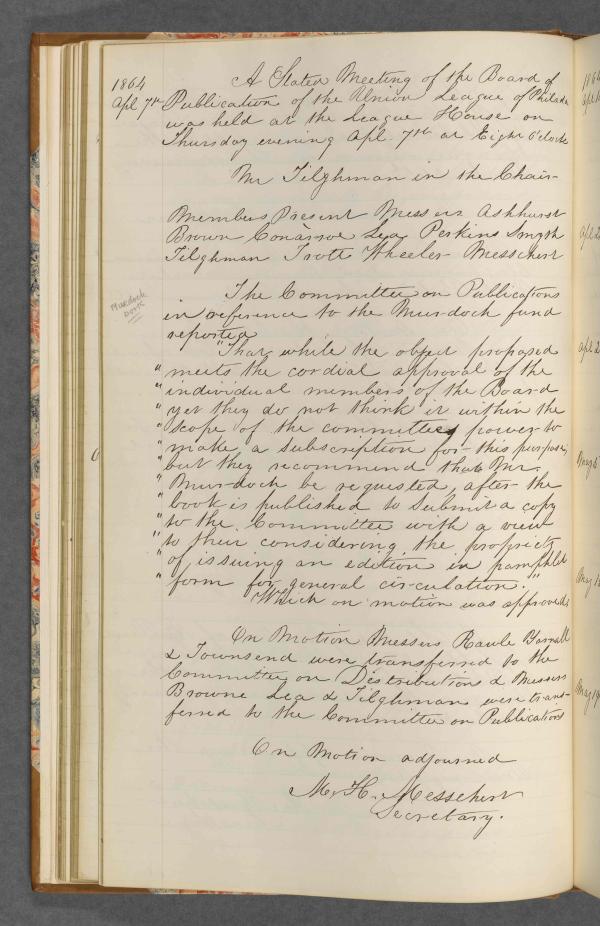 1864
Apl. 7th
A Stated Meeting of the Board of
Publication of the Union League of Philada
was held at the League House on
Thursday evening Apl. 7th at Eight O'clock
Mr Tilghman in the Chair-
Members Present Messers Ashhurst
Brown Conarroe Lea Perkins Smyth
Tilghman Trott Wheeler Messchert
Murdock
book
The Committee on Publications
in reference to the Murdoch fund
reported
"That while the object proposed
" meets the cordial approval of the
" individual members of the Board
" yet they do not think it within the
" scope of the committees power to
" make a subscription for this purpose,
" but they recommend that Mr.
" Murdoch be requested, after the
" book is published to submit a copy
" to the Committee with a view
" to their considering the propriety
" of issuing an edition in pamphlet
" form for general circulation."
Which on motion was approved.
On Motion Messers Raule Yarnall
& Townsend were transferred to the
Committee on Distributions & Messers
Browne Lea & Tilghman were trans-
ferred to the Committee on Publications
On Motion adjourned
M. H. Messchert
Secretary.